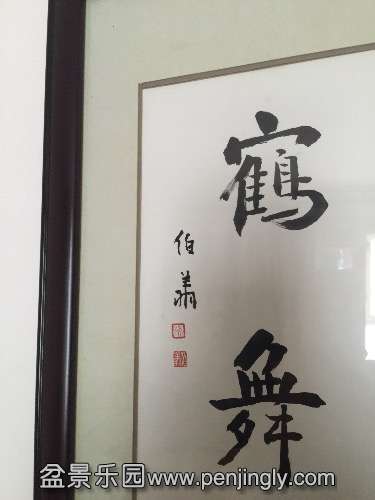 鶴舞
伯翔
盆景乐园www.penjingly.com